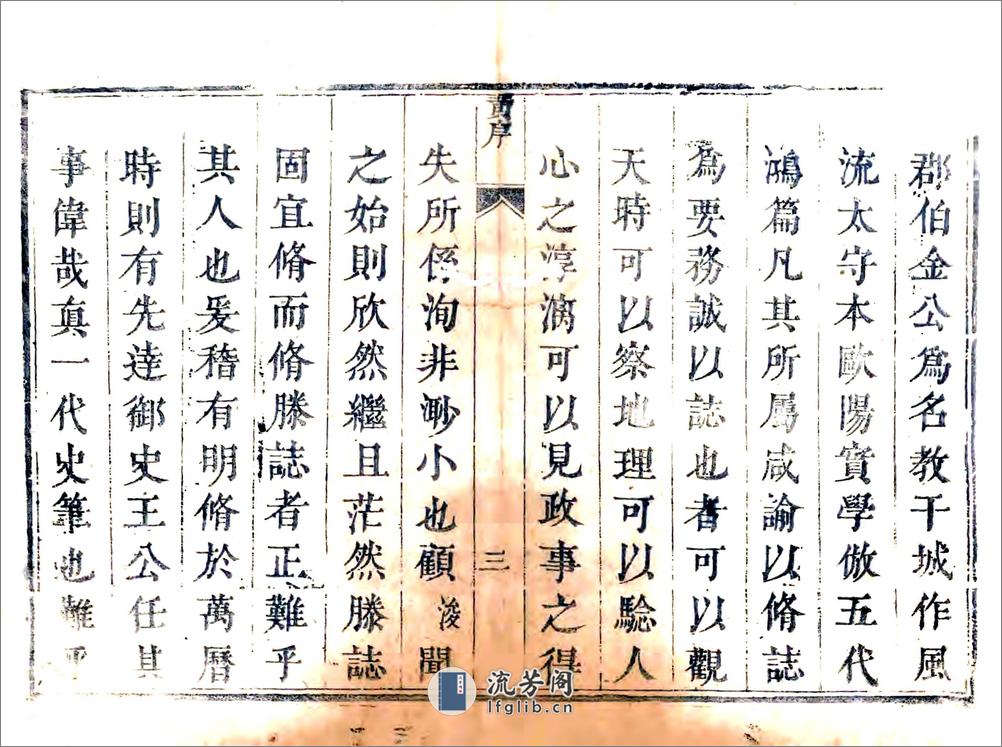 郡伯金公爲名教干城作風
流太守本歐陽實學倣五代
鴻篇凡其所屬咸諭以脩誌
爲要務誠以誌也者可以觀
天時可以察地理可以騐人
心之淳漓可以見政事之得
序
三
失所係洵非渺小也顧浚聞
之始則欣然繼且茫然滕誌
固宜脩而脩滕誌者正難乎
其人也爰稽有明脩於萬曆
時則有先達御史王公任其
事偉哉真一代史筆也難乎
流芳阁
lfglib.cn